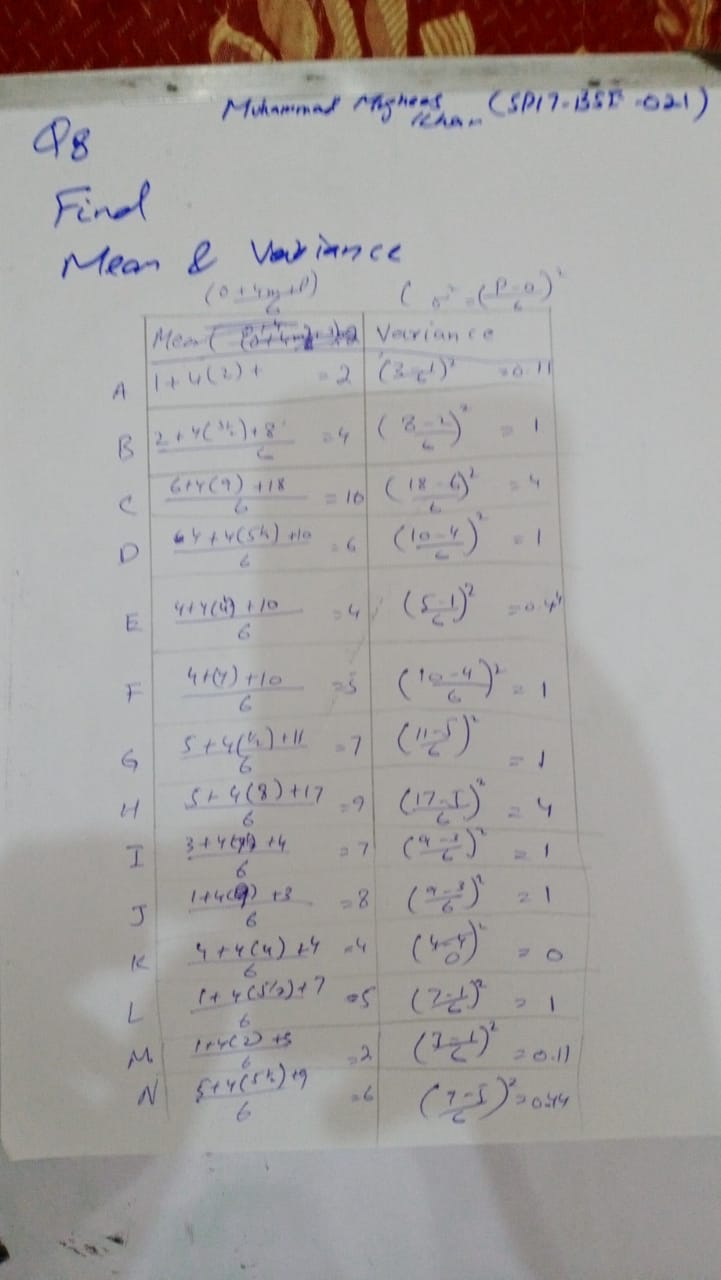 Muhammad Khan (SP17-BSE-021)
Q8
Find
Mean & Variance
(o+4m+p)/6 (σ² = (p-o)/6)²
Mean Variance
A 1+4(2)+ =2 (3-1/6)² =0.11
B 2+4(3½)+8/6 =4 (8-2/6)² =1
C 6+4(9)+18/6 =10 (18-6/6)² =4
D 4+4(5½)+10/6 =6 (10-4/6)² =1
E 4+4(4)+10/6 =4 (5-1/6)² =0.44
F 4+(4)+10/6 =5 (10-4/6)² =1
G 5+4(½)+11/6 =7 (11-5/6)² =1
H 5+4(8)+17/6 =9 (17-5/6)² =4
I 3+4( )+4/6 =7 (9-3/6)² =1
J 1+4(9)+3/6 =8 (9-3/6)² =1
K 4+4(4)+4/6 =4 (4-4/0)² =0
L 1+4(5½)+7/6 =5 (7-1/6)² =1
M 1+4(2)+3/6 =2 (3-1/6)² =0.11
N 5+4(5½)+9/6 =6 (9-5/6)² =0.44